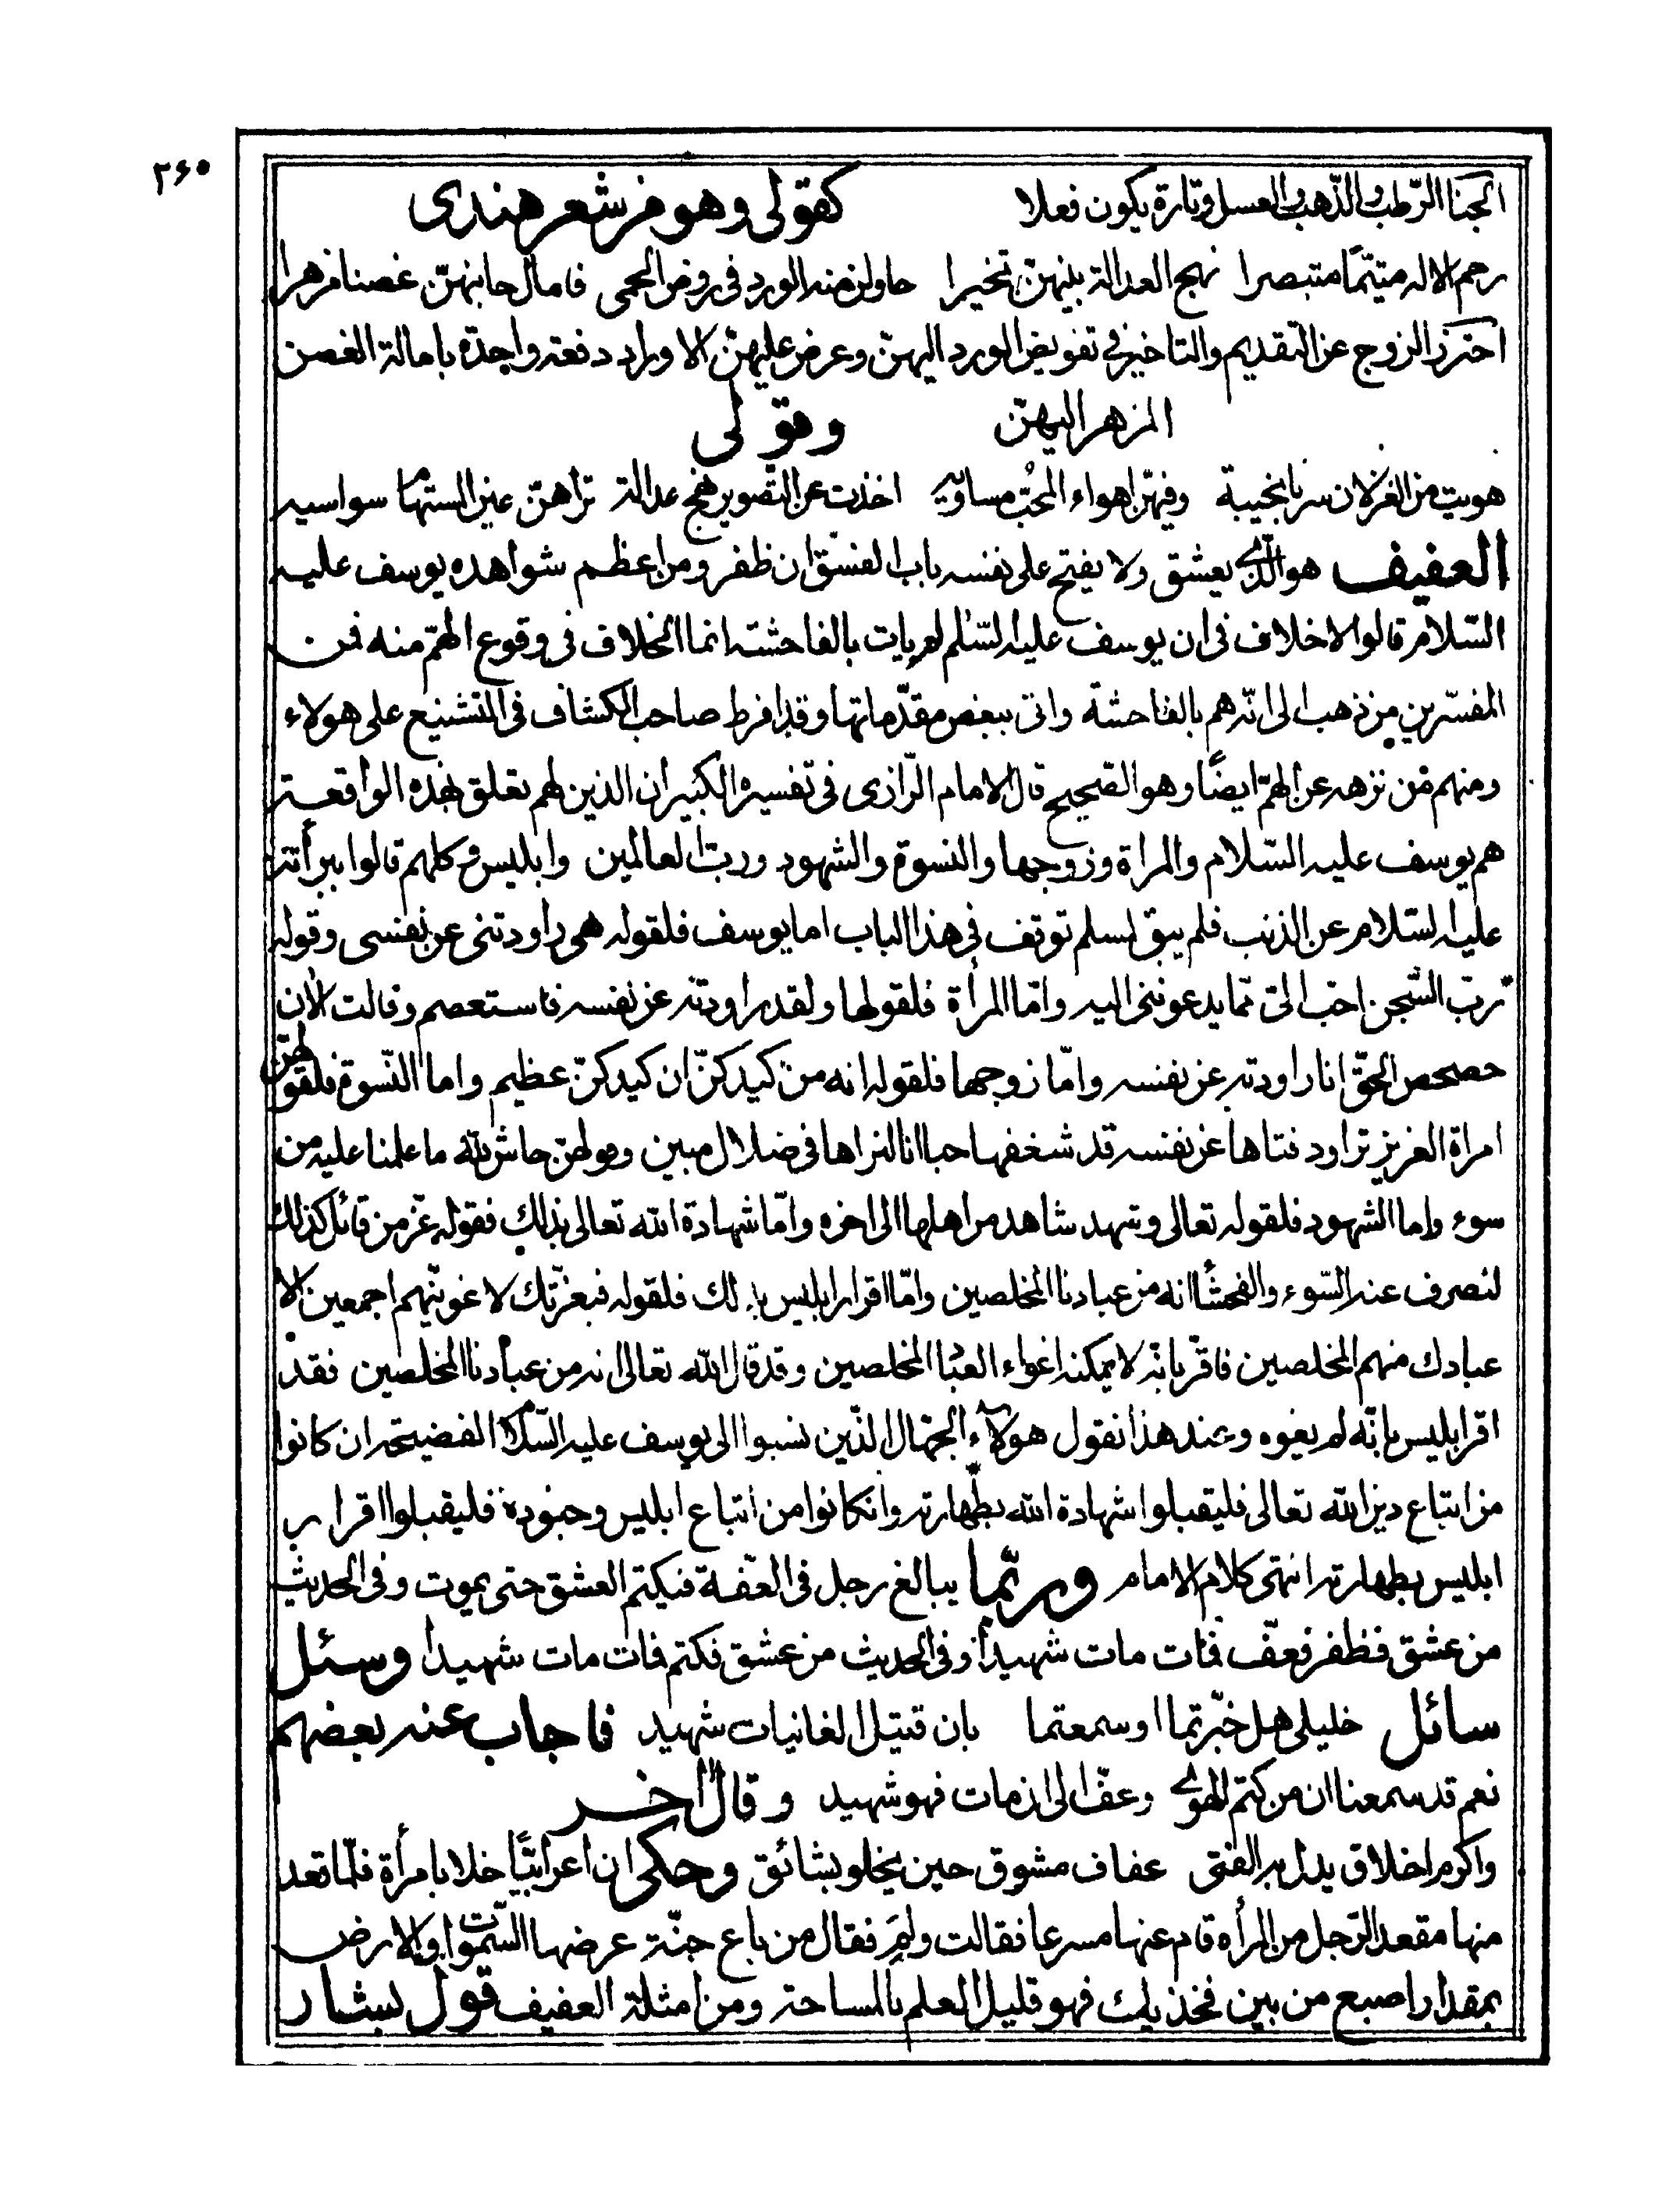 ۲۶۰
الجنا الرّطب والذّهب والعسل وتارة يكون فعلا كقولى وهو من شعر هندى
رحم الاله متيّمًا متبصرا نهج العدالة بينهنّ تخيرا حاولن منه الورد فى روض الحمى فامال جانبهنّ غصنا مزهرا
احترز الزوج عن التقديم والتاخير فى تفويض الورد اليهنّ وعرض عليهنّ الاوراد دفعة واحدة بامالة الغصن
المزهر اليهنّ وقولى
هويت من الغزلان سربا نجيبة وفيهنّ اهواء المحبّ مساويه اخذت عن التصوير نهج عدالة تراهنّ عين المستهام سواسيه
العفيف هو الّذى يعشق ولا يفتح على نفسه باب الفسق ان ظفر ومن اعظم شواهده يوسف عليه
السّلام قالوا لا خلاف فى ان يوسف عليه السّلم لم يات بالفاحشة انما الخلاف فى وقوع الهمّ منه فمن
المفسّرين من ذهب الى انّه هم بالفاحشة واتى ببعض مقدّماتها وقد افرط صاحب الكشاف فى التشنيع على هولاء
ومنهم من نزهه عن الهمّ ايضًا وهو الصحيح قال الامام الرّازى فى تفسيره الكبير ان الذين لهم تعلق بهذه الواقعة
هم يوسف عليه السّلام والمراة وزوجها والنسوة والشهود وربّ العالمين وابليس وكلهم قالوا ببرأته
عليه السّلام عن الذنب فلم يبق لمسلم توقف فى هذا الباب اما يوسف فلقوله هى راودتنى عن نفسى وقوله
ربّ السّجن احبّ الىّ ممّا يدعوننى اليه وامّا المرأة فلقولها ولقد راودته عن نفسه فاستعصم وقالت الآن
حصحص الحقّ انا راودته عن نفسه وامّا زوجها فلقوله انه من كيدكنّ ان كيدكنّ عظيم واما النّسوة فلقولهنّ
امراة العزيز تراود فتاها عن نفسه قد شغفها حبا انا لنراها فى ضلال مبين وقولهنّ حاش لله ما علمنا عليه من
سوء واما الشهود فلقوله تعالى وشهد شاهد من اهلها الى اخره وامّا شهادة الله تعالى بذلك فقوله عزّ من قائل كذلك
لنصرف عنه السّوء والفحشاء انه من عبادنا المخلصين وامّا اقرار ابليس بذلك فلقوله فبعزّتك لاغوينّهم اجمعين الا
عبادك منهم المخلصين فاقرّ بانّه لا يمكنه اغواء العباد المخلصين وقد قال الله تعالى انه من عبادنا المخلصين فقد
اقر ابليس بانّه لم يغوه وعند هذا نقول هولاء الجهّال الذّين نسبوا الى يوسف عليه السّلام الفضيحة ان كانوا
من اتباع دين الله تعالى فليقبلوا شهادة الله بطهارته وانكانوا من اتباع ابليس وجنوده فليقبلوا اقرار
ابليس بطهارته انتهى كلام الامام وربّما يبالغ رجل فى العفّة فيكتم العشق حتى يموت وفى الحديث
من عشق فظفر فعفّ فمات مات شهيدا وفى الحديث من عشق فكتم فمات مات شهيدا وسئل
سائل خليلى هل خبّرتما او سمعتما بان قتيل الغانيات شهيد فاجاب عنه بعضهم
نعم قد سمعنا ان من كتم الهوى وعفّ الى ان مات فهو شهيد وقال اخر
واكرم اخلاق يدل به الفتى عفاف مشوق حين يخلو بشائق وحكى ان اعرابيّا خلا بامرأة فلمّا قعد
منها مقعد الرّجل من المرأه قام عنها مسرعا فقالت ولم فقال من باع جنّة عرضها السّموات والارض
بمقدار اصبع من بين فخذيك فهو قليل العلم بالمساحة ومن امثلة العفيف قول بشار